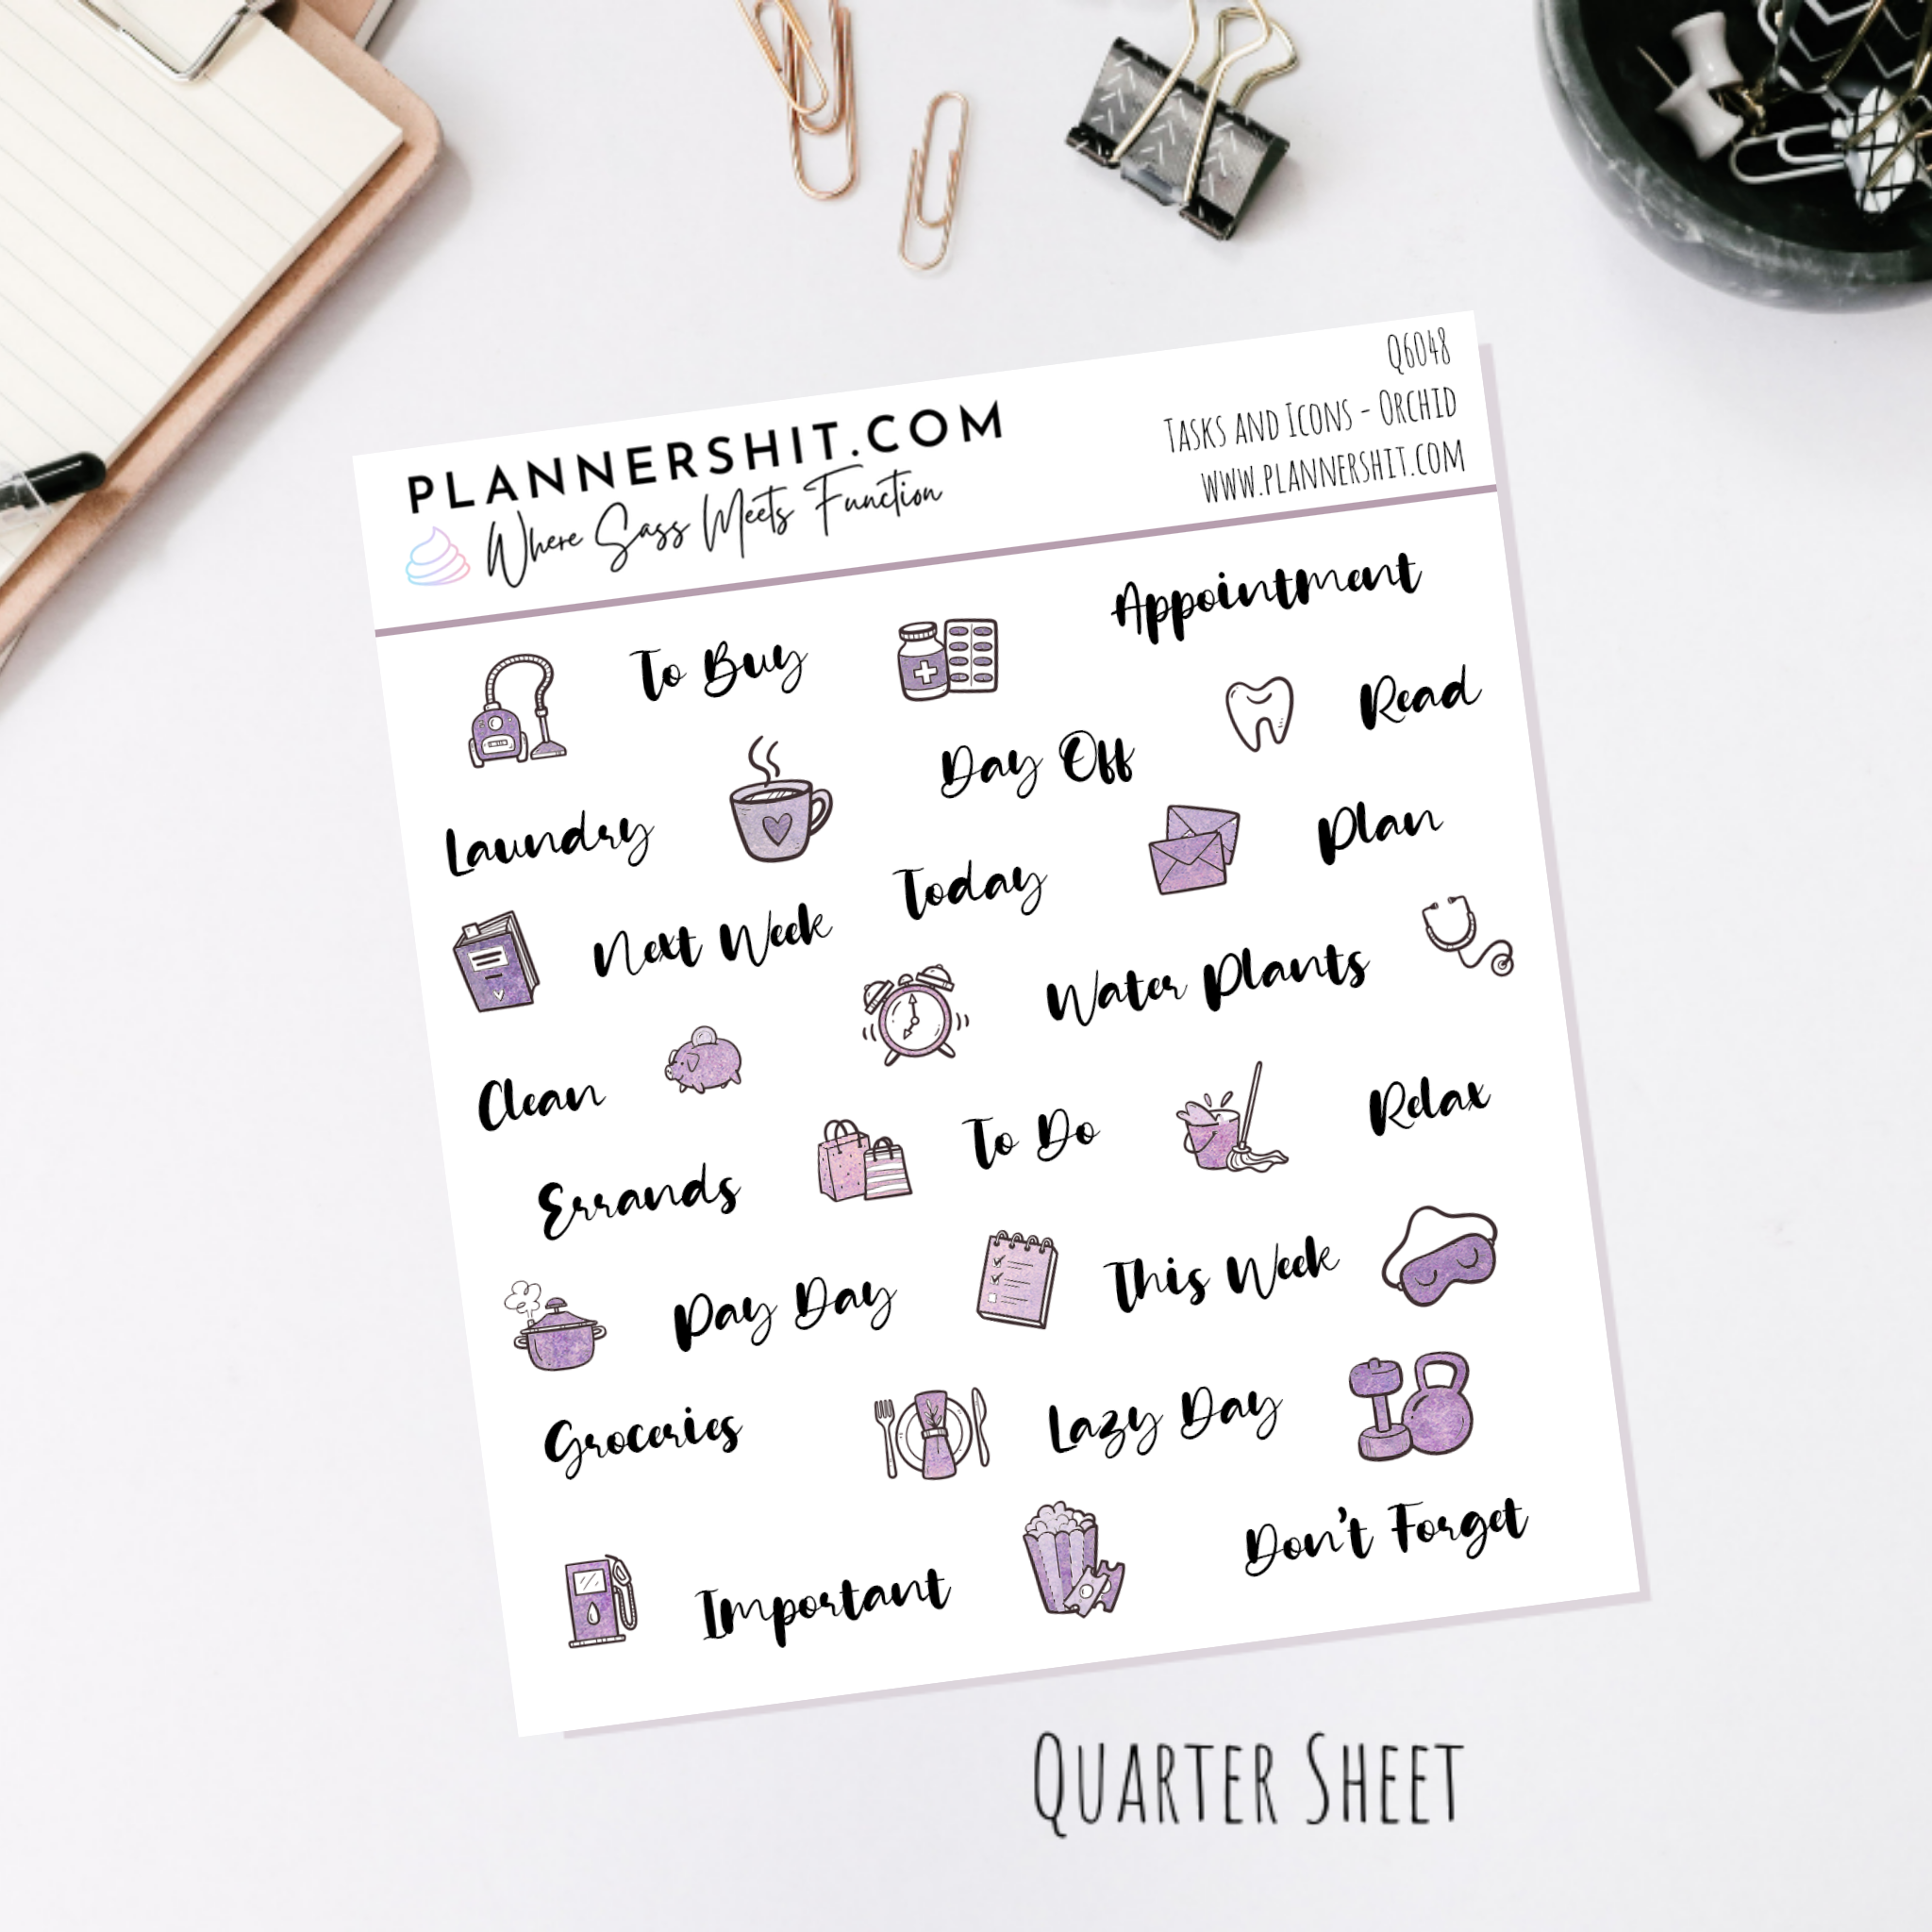 Q6048
Tasks and Icons - Orchid
www.plannershit.com
PLANNERSHIT.COM
Where Sass Meets Function
To Buy
Appointment
Read
Day Off
Laundry
Plan
Today
Next Week
Water Plants
Clean
To Do
Relax
Errands
This Week
Pay Day
Lazy Day
Groceries
Don't Forget
Important
Quarter Sheet